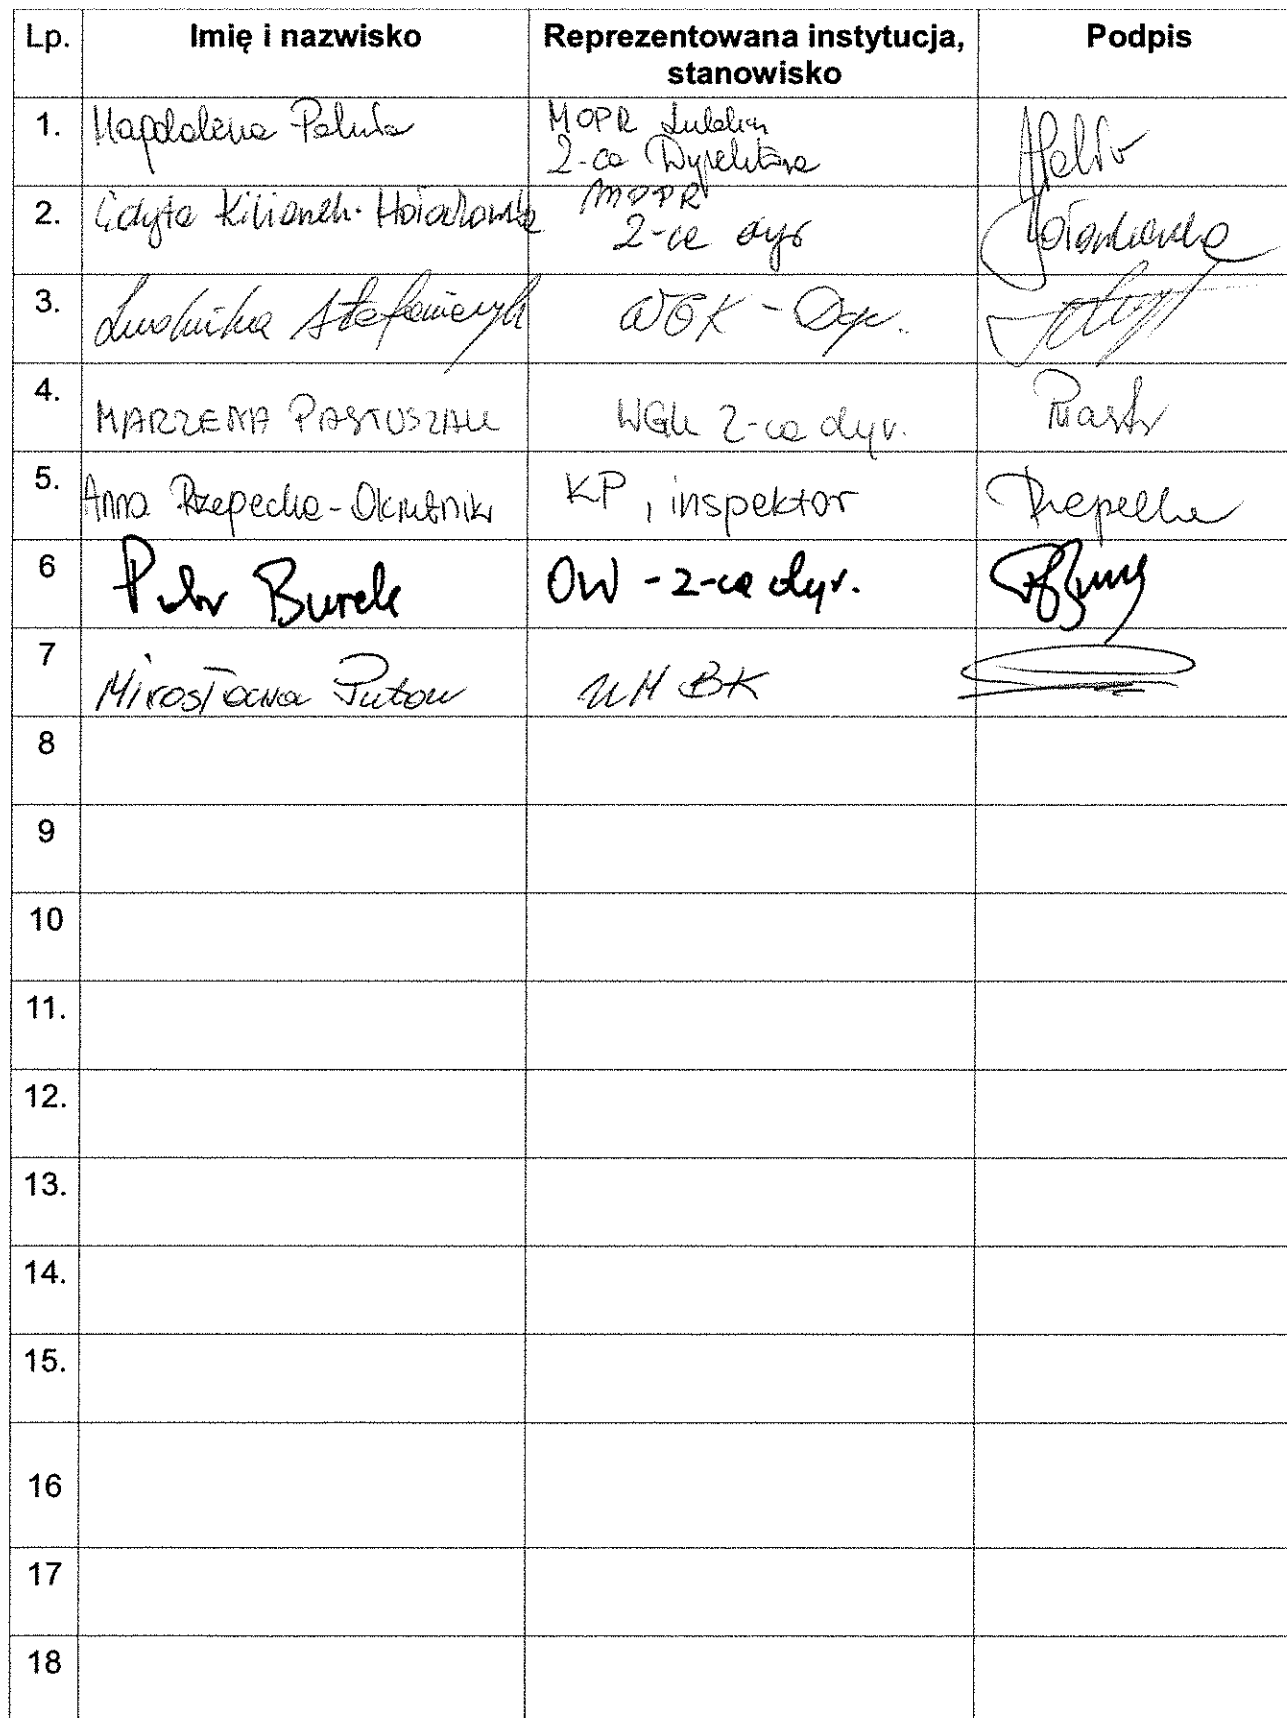 Lp. Imię i nazwisko Reprezentowana instytucja, Podpis
stanowisko
1. Magdalena MOPR Lublin
2-ca Dyrektora
2. Edyta MOPR
2-ca dyr
3. Stefańczyk WGK - Dyr.
4. MARZENA PASTUSZAK WGK 2-ca dyr.
5. Anna Rzepecka-Okrutnik KP, inspektor Rzepecka
6 Piotr Burek OW - 2-ca dyr.
7 Mirosława Puton UM BK
8
9
10
11.
12.
13.
14.
15.
16
17
18